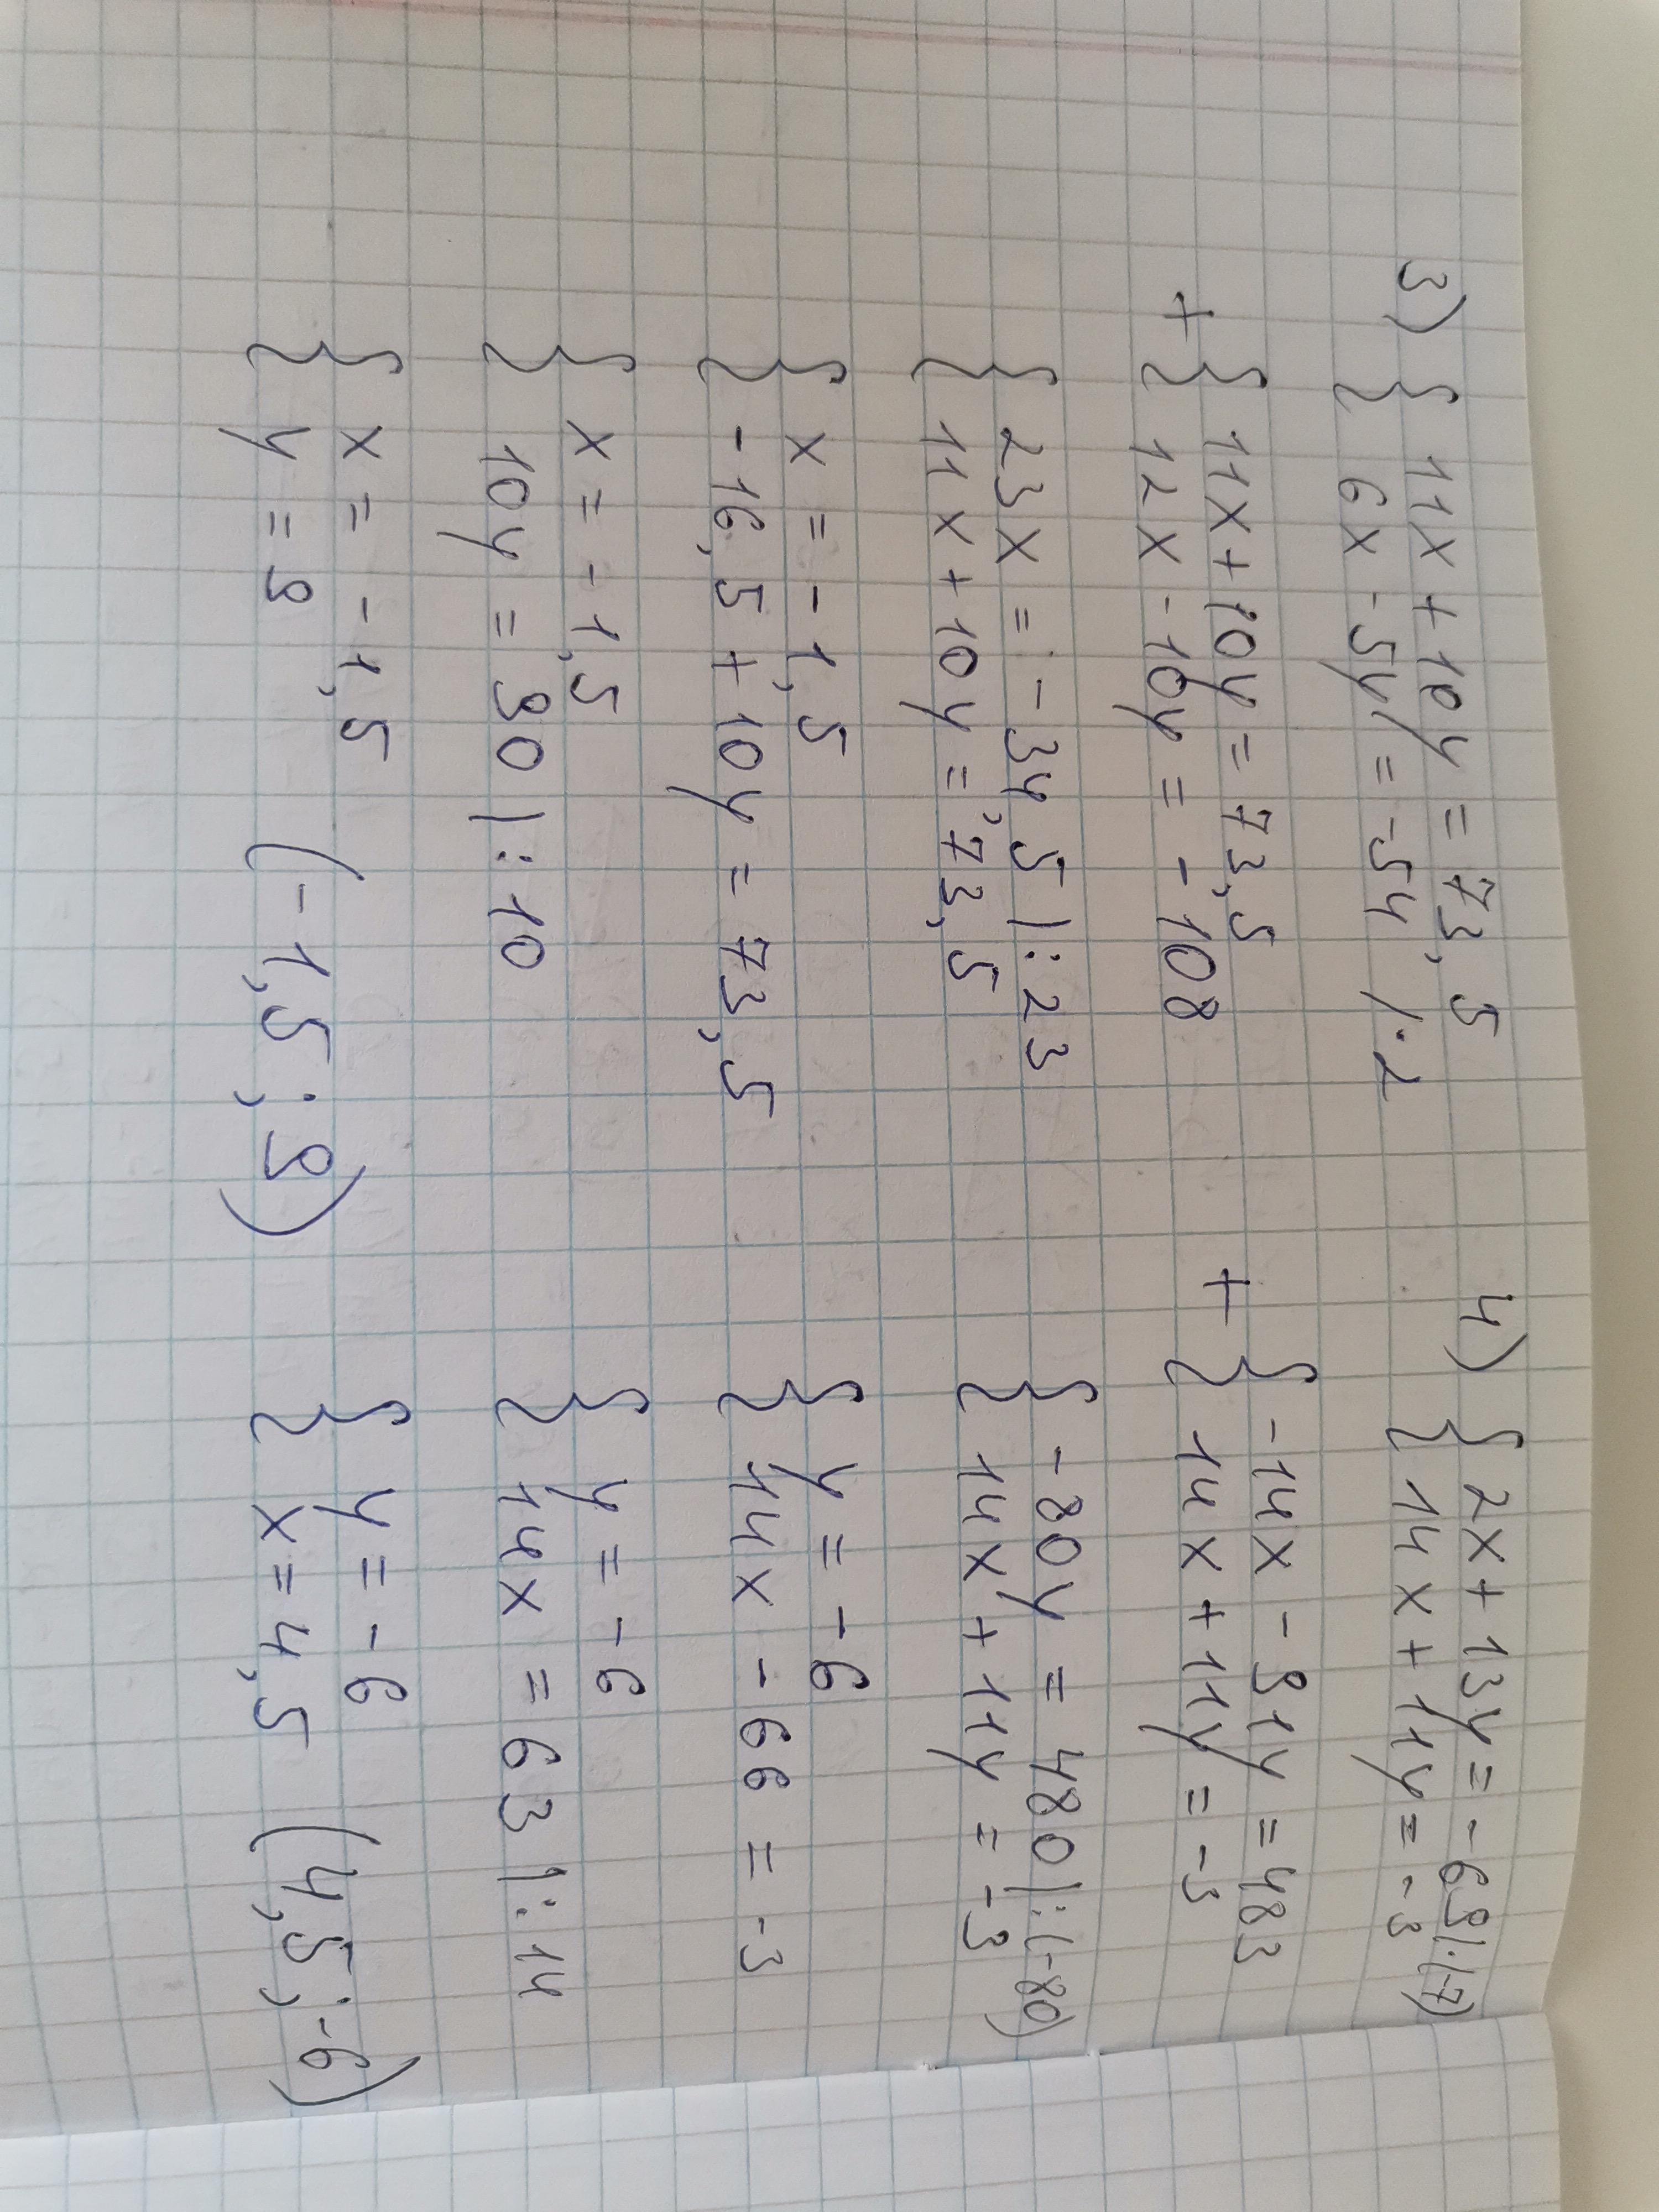 3) { 11x + 10y = 73,5
6x - 5y = -54 |·2
+ { 11x + 10y = 73,5
12x - 10y = - 108
{ 23x = - 34,5 |:23
11x + 10y = 73,5
{ x = - 1,5
- 16,5 + 10y = 73,5
{ x = - 1,5
10y = 90 |:10
{ x = - 1,5
y = 9 (-1,5 ; 9)
4) { 2x + 13y = - 69 |·(-7)
14x + 11y = -3
+ { -14x - 91y = 483
14x + 11y = -3
{ - 80y = 480 |:(-80)
14x + 11y = -3
{ y = - 6
14x - 66 = -3
{ y = - 6
14x = 63 |:14
{ y = - 6
x = 4,5 (4,5 ; -6)